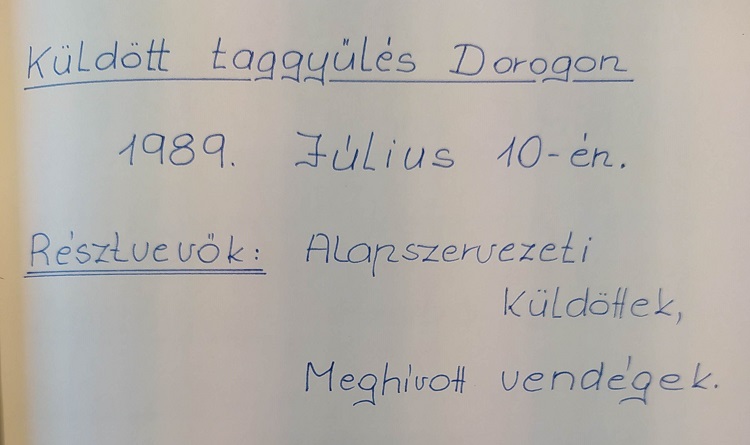 Küldött taggyűlés Dorogon
1989. Július 10-én.
Résztvevők: Alapszervezeti
Küldöttek,
Meghívott vendégek.